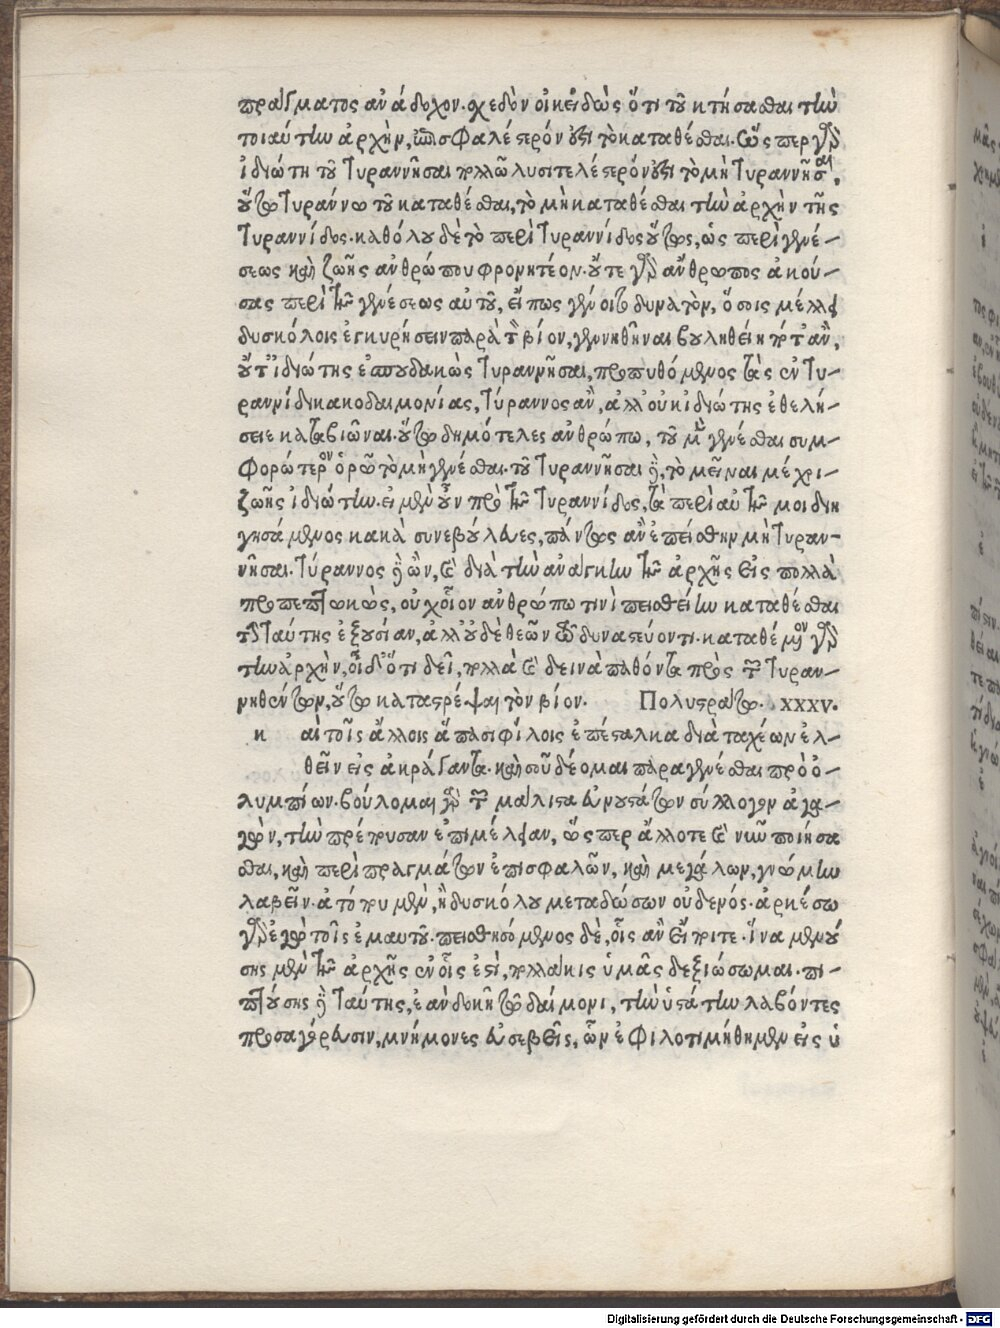 πράγματος ἀνάδοχον. σχεδὸν οἰκείδως ὅτι τοῦ κτήσασθαι τὴν
τοιαύτην ἀρχὴν, ἐπισφαλέστερόν ἐστι τὸ καταθέσθαι. ὥσπερ γὰρ
ἰδιώτῃ τοῦ τυραννῆσαι πολλῷ λυσιτελέστερόν ἐστι τὸ μὴ τυραννῆσαι,
οὕτω τυράννῳ τοῦ καταθέσθαι, τὸ μὴ καταθέσθαι τὴν ἀρχὴν τῆς
τυραννίδος. καθόλου δὲ τὸ περὶ τυραννίδος οὕτως, ὡς περὶ γενέ-
σεως καὶ ζωῆς ἀνθρώπου φρονητέον. οὔτε γὰρ ἄνθρωπος ἀκού-
σας περὶ τῆς γενέσεως αὐτοῦ, εἴ πως γένοιτο δυνατὸν, ὅσοις μέλλει
δυσκόλοις ἐγκυρήσειν παρὰ τὸν βίον, γεννηθῆναι βουληθείη ποτ' ἂν,
οὔτ' ἰδιώτης ἐσπουδακὼς τυραννῆσαι, προπυθόμενος τὰς ἐν τυ-
ραννίδι κακοδαιμονίας, τύραννος ἂν, ἀλλ' οὐκ ἰδιώτης ἐθελή-
σειε καταβιῶναι. οὕτω δημότελες ἀνθρώπῳ, τοῦ μὲν γενέσθαι συμ-
φορώτερον ὁρῶ τὸ μὴ γενέσθαι. τοῦ τυραννῆσαι δὲ, τὸ μεῖναι μέχρι
ζωῆς ἰδιώτην. εἰ μὲν οὖν πρὸ τῆς τυραννίδος, τὰ περὶ αὐτῆς μοι διη
γησάμενος κακὰ συνεβούλευες, πάντως ἂν ἐπείσθην μὴ τυραν-
νῆσαι. τύραννος δὲ ὢν, καὶ διὰ τὴν ἀνάγκην τῆς ἀρχῆς εἰς πολλὰ
προπεπτωκὼς, οὐχ οἷον ἀνθρώπῳ τινὶ πεισθείην καταθέσθαι
τὴν ταύτης ἐξουσίαν, ἀλλ' οὐδὲ θεῶν τῷ δυναστεύοντι. καταθέμενον γὰρ
τὴν ἀρχὴν, οἶδ' ὅτι δεῖ, πολλὰ καὶ δεινὰ παθόντα πρὸς τῶν τυραν-
νηθέντων, οὕτω καταστρέψαι τὸν βίον. Πολυστράτῳ. XXXV.
κ αὶ τοῖς ἄλλοις ἅπασι φίλοις ἐπέσταλκα διὰ ταχέων ἐλ-
θεῖν εἰς ἀκράγαντα. καὶ σοῦ δέομαι παραγενέσθαι πρὸ ὀ-
λυμπίων. βούλομαι γὰρ τῶν μάλιστα εὐνουστάτων σύλλογον ἀγα-
γὼν, τὴν πρέπουσαν ἐπιμέλειαν, ὥσπερ ἄλλοτε καὶ νῦν ποιήσα
σθαι, καὶ περὶ πραγμάτων ἐπισφαλῶν, καὶ μεγάλων, γνώμην
λαβεῖν. ἀτόπου μὲν, ἢ δυσκόλου μεταδώσων οὐδενός. ἀρκέσω
γὰρ ἐγὼ τοῖς ἐμαυτοῦ. πεισθησόμενος δὲ, οἷς ἂν εἴπητε. ἵνα μενού
σης μὲν τῆς ἀρχῆς ἐν οἷς ἐστὶ, πολλάκις ὑμᾶς δεξιώσωμαι. πι-
πτούσης δὲ ταύτης, ἐὰν δοκῇ τῷ δαίμονι, τὴν ὑστάτην λαβόντες
προσαγόρευσιν, μνήμονες εὐσεβεῖς, ὧν ἐφιλοτιμήθημεν εἰς ὑ
Digitalisierung gefördert durch die Deutsche Forschungsgemeinschaft - DFG